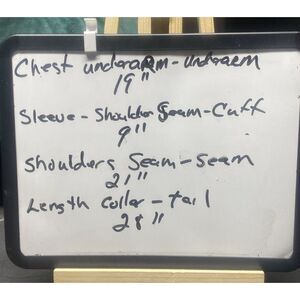 Chest underarm-underarm
19"
Sleeve - Shoulder Seam-Cuff
9"
Shoulders Seam-Seam
21"
Length Collar-tail
28"